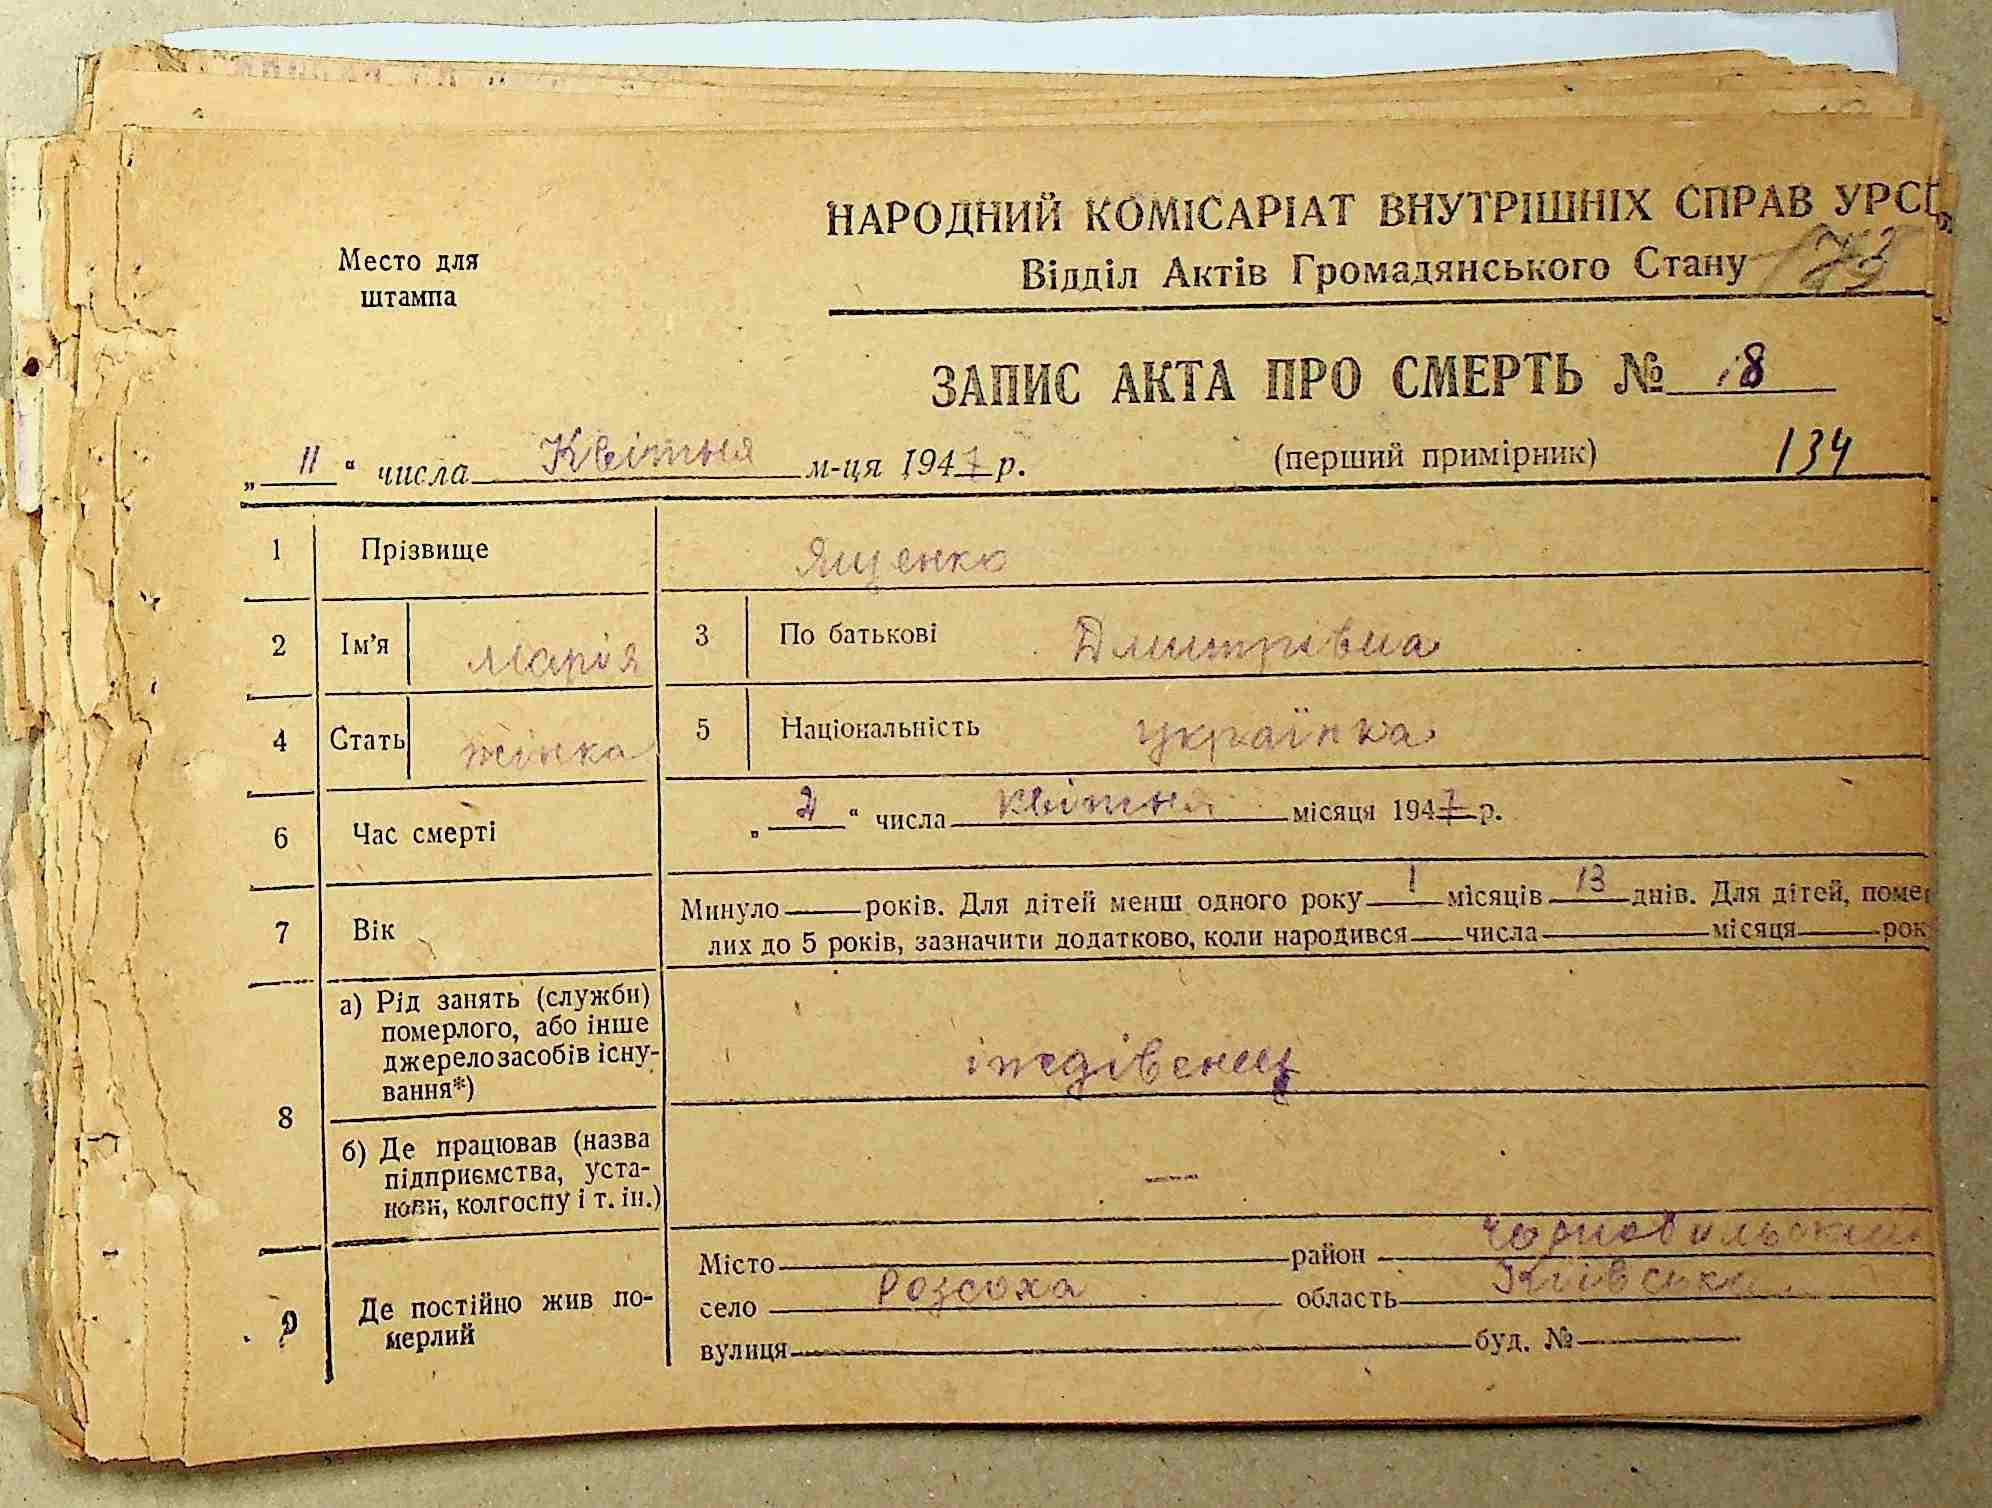 НАРОДНИЙ КОМІСАРІАТ ВНУТРІШНІХ СПРАВ УРСР
Место для штампа
Відділ Актів Громадянського Стану
ЗАПИС АКТА ПРО СМЕРТЬ № 18
„ 11 “ числа Квітня м-ця 1947 р. (перший примірник) 134
1 Прізвище Ященко
2 Ім’я Марія 3 По батькові Дмитрівна
4 Стать жінка 5 Національність українка
6 Час смерті „ 2 “ числа квітня місяця 1947 р.
7 Вік Минуло — років. Для дітей менш одного року 1 місяців 13 днів. Для дітей, помер
лих до 5 років, зазначити додатково, коли народився — числа — місяця — рок
8 а) Рід занять (служби)
померлого, або інше
джерело засобів існу-
вання*) іждівенец
б) Де працював (назва
підприємства, уста-
нови, колгоспу і т. ін.) —
9 Де постійно жив по-
мерлий
Місто — район Чорнобильский
село Розсоха область Київська
вулиця — буд. № —